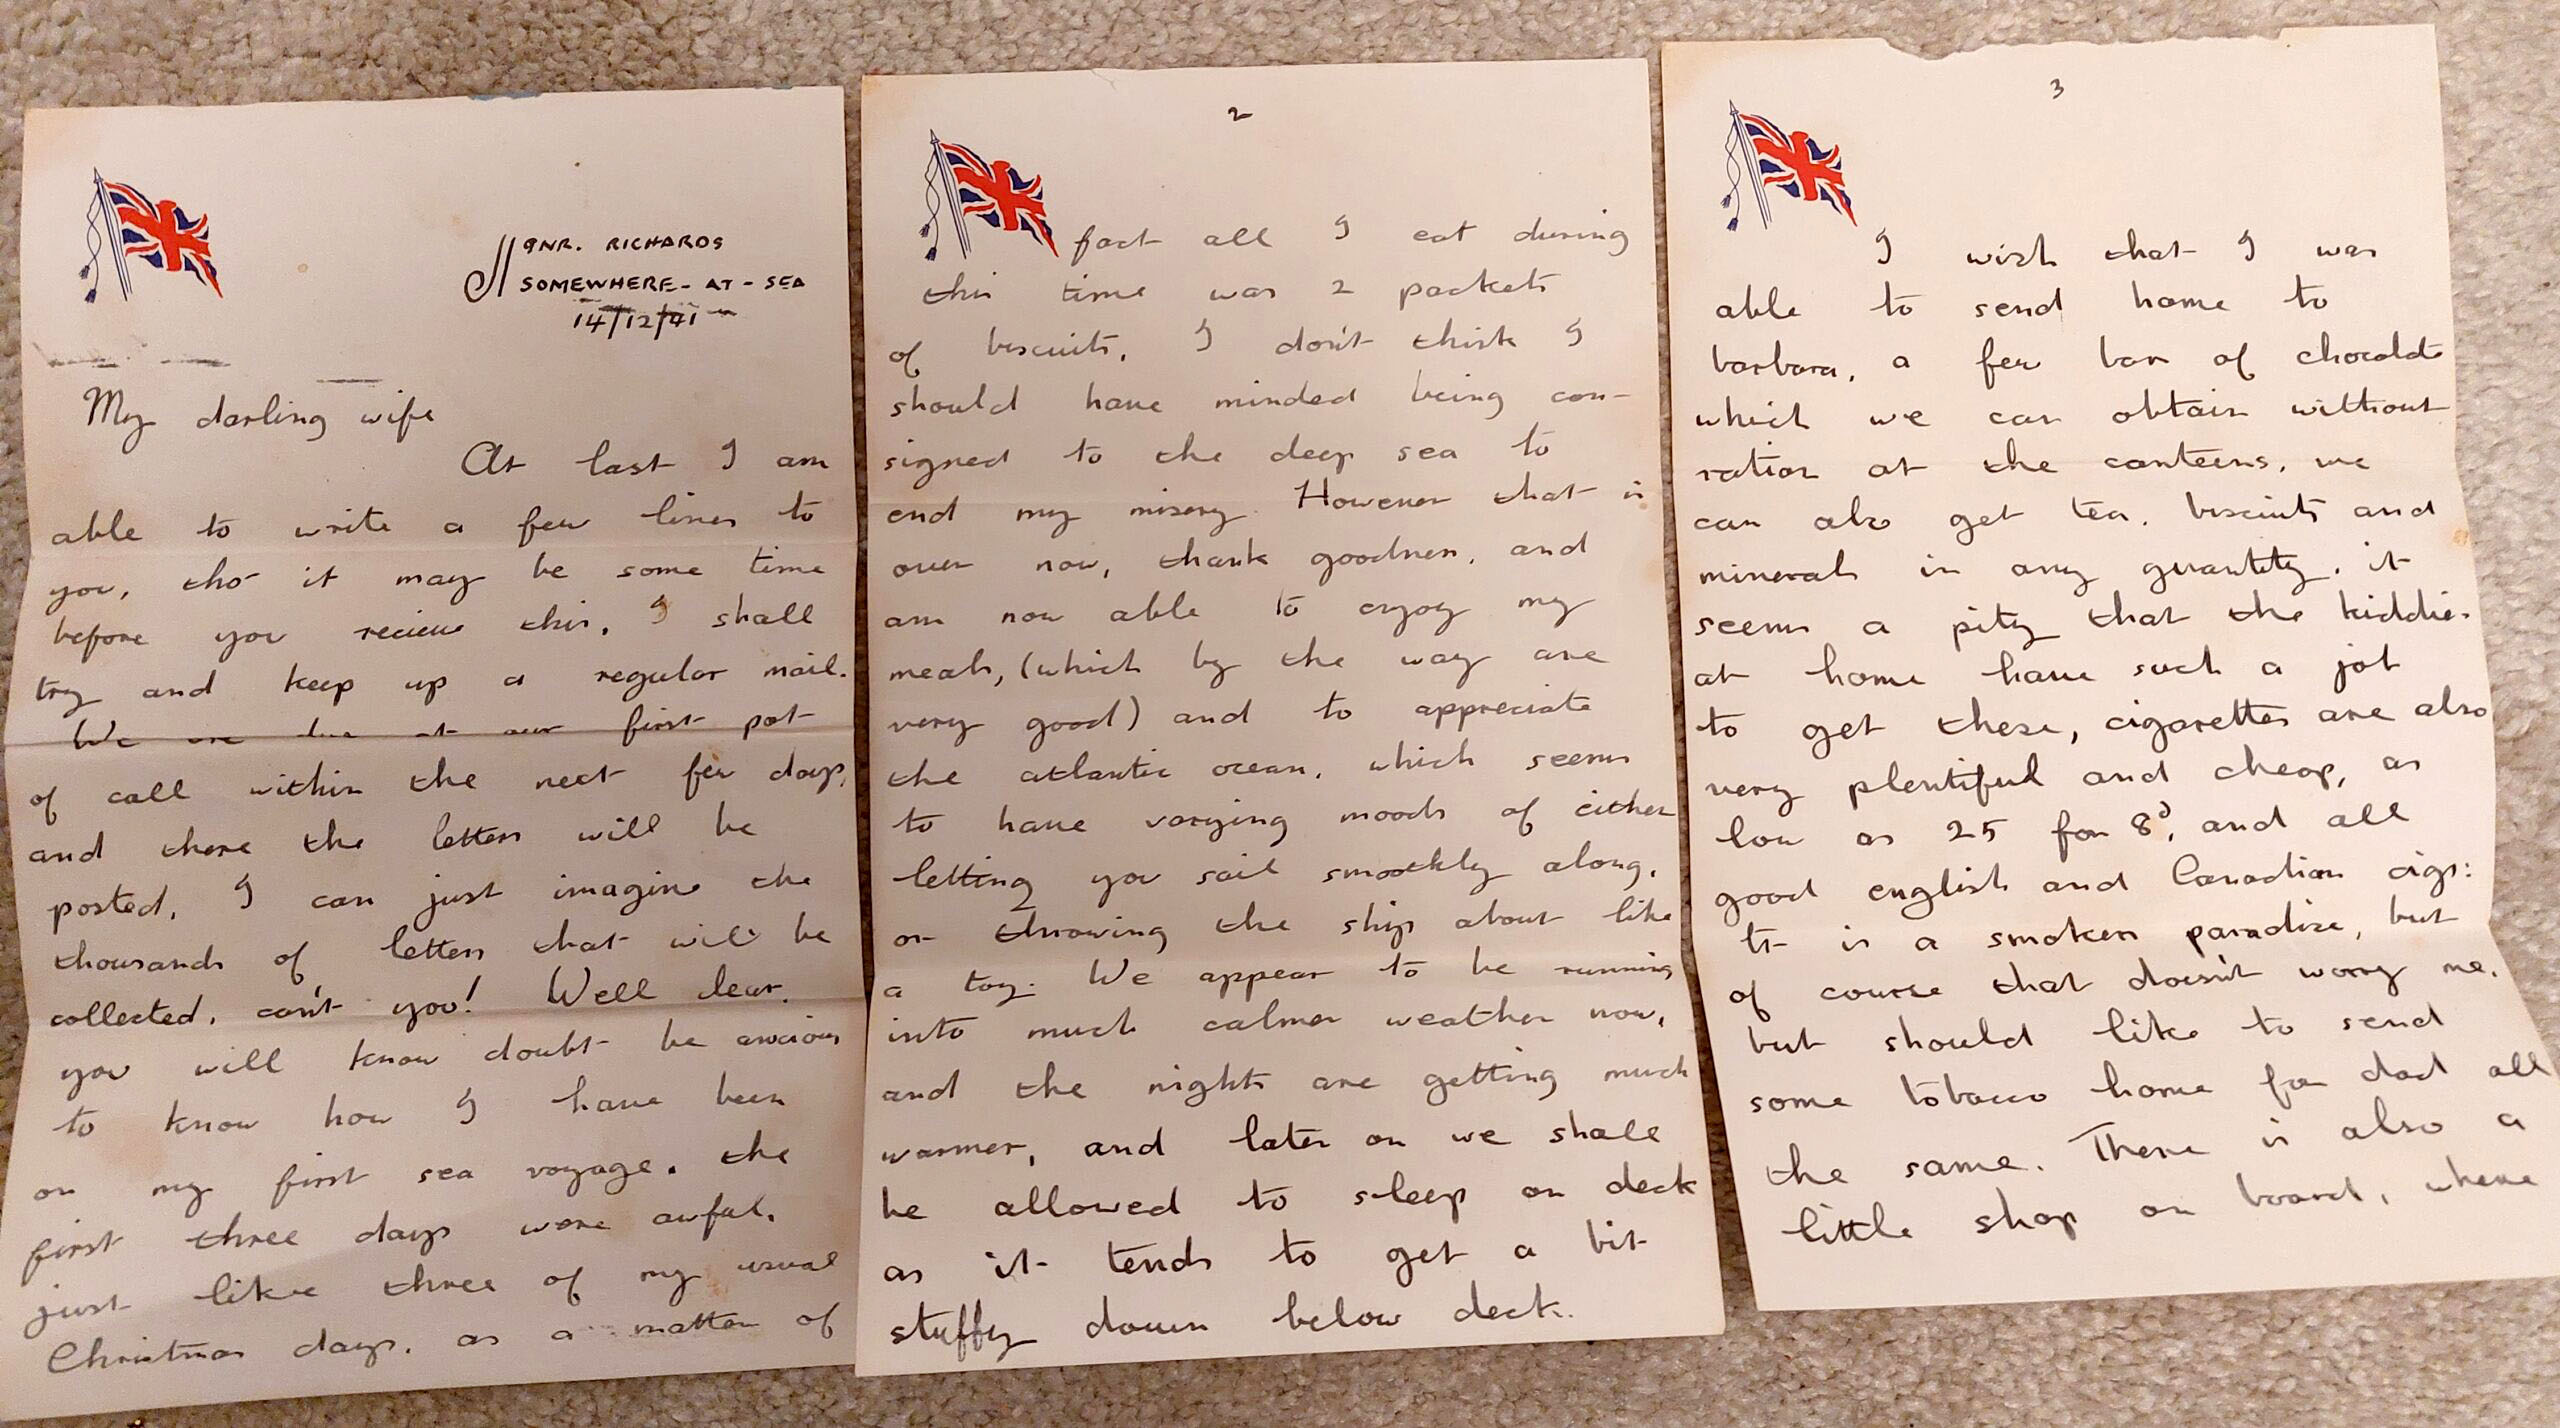 GNR. RICHARDS
SOMEWHERE-AT-SEA
14/12/41
My darling wife
At last I am
able to write a few lines to
you, tho' it may be some time
before you recieve this, I shall
try and keep up a regular mail.
We are due at our first pot
of call within the next few days,
and there the letters will be
posted, I can just imagine the
thousands of letters that will be
collected, can't you! Well dear,
you will know doubt be anxious
to know how I have been
on my first sea voyage. the
first three days were awful,
just like three of my usual
Christmas days, as a matter of
2
fact all I eat during
this time was 2 packets
of biscuits, I don't think I
should have minded being con-
signed to the deep sea to
end my misery. However that is
over now, thank goodness, and
am now able to enjoy my
meals, (which by the way are
very good) and to appreciate
the atlantic ocean, which seems
to have varying moods of either
letting you sail smoothly along,
or throwing the ship about like
a toy. We appear to be running
into much calmer weather now,
and the nights are getting much
warmer, and later on we shall
be allowed to sleep on deck
as it tends to get a bit
stuffy down below deck.
3
I wish that I was
able to send home to
barbara, a few bars of chocolate
which we can obtain without
ration at the canteens, we
can also get tea, biscuits and
minerals in any quantity, it
seems a pity that the kiddies
at home have such a job
to get these, cigarettes are also
very plentiful and cheap, as
low as 25 for 8d, and all
good english and Canadian cigs:
It is a smokers paradise, but
of course that doesn't worry me,
but should like to send
some tobacco home for dad all
the same. There is also a
little shop on board, where